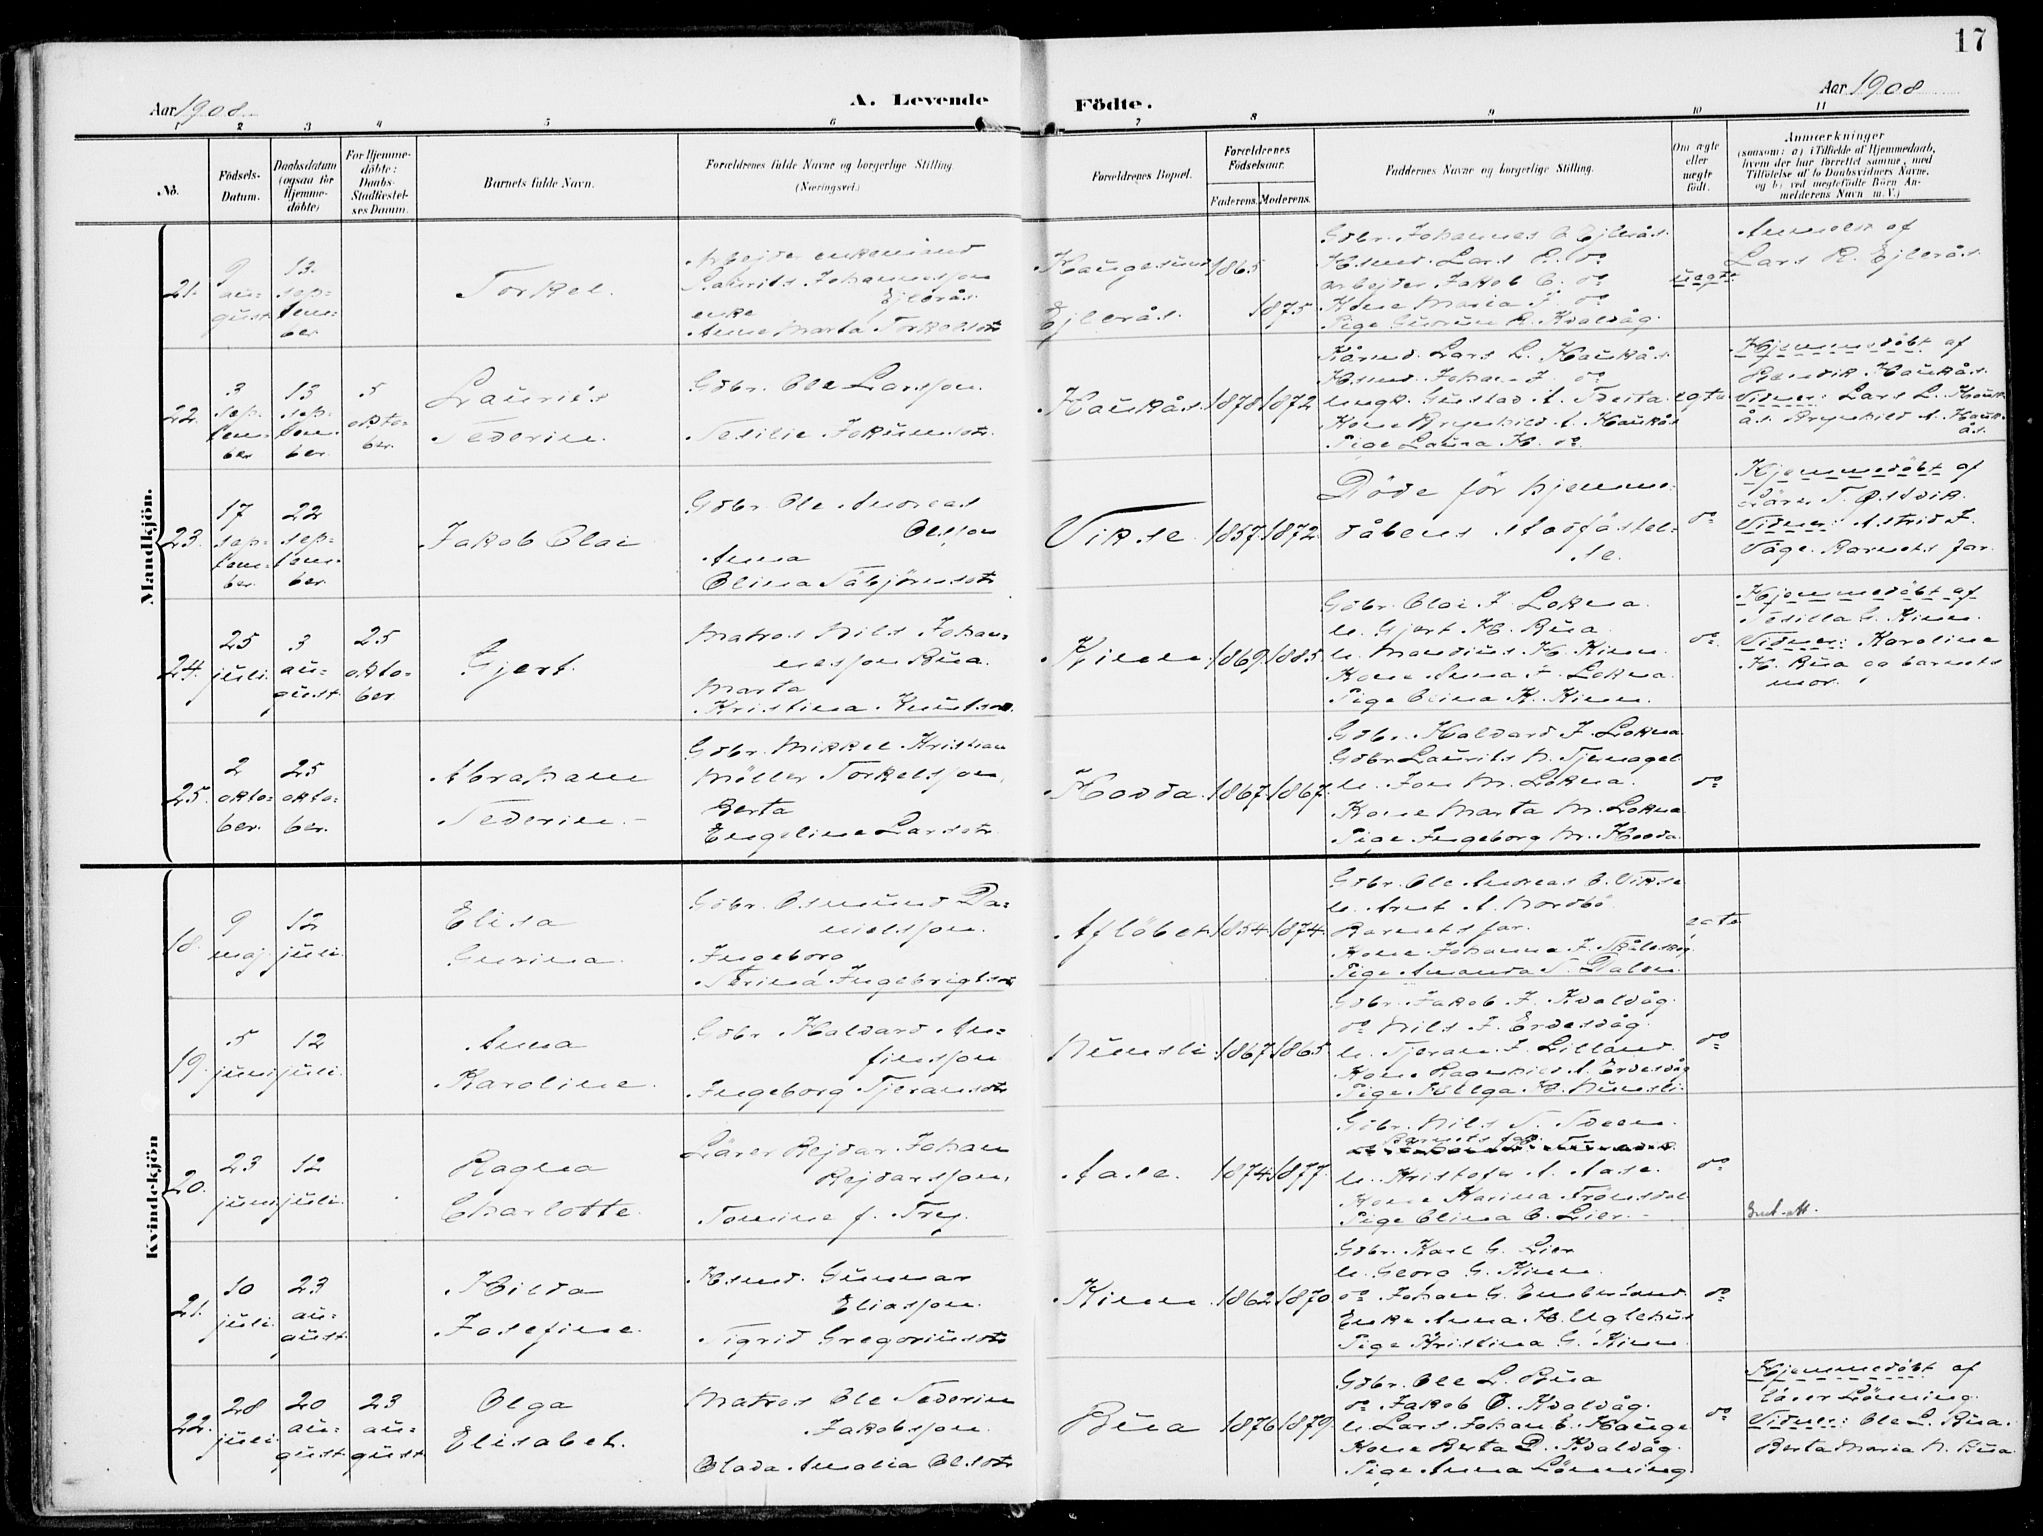 17
Aar 1908
A. Levende
Födte.
Aar 1908
1 2 3 4 5 6 7 8 9 10 11
No.
Födsels-
Datum.
Daabsdatum
(ogsaa for
Hjemme-
döbte)
For Hjemme-
döbte:
Daabs-
Stadfæstel-
ses Datum.
Barnets fulde Navn.
Forældrenes fulde Navne og borgerlige Stilling.
(Næringsvei.)
Forældrenes Bopæl.
Forældrenes
Födselsaar.
Faderens.
Moderens.
Faddernes Navne og borgerlige Stilling.
Om ægte
eller
uægte
födt.
Anmærkninger
(saasom: a) i Tilfælde af Hjemmedaab,
hvem der har forrettet samme, med
Tilföielse af to Daabsvidners Navne,
og b) ved uægtefödte Börn An-
melderens Navn m. V.)
Mandkjön.
21.
9
au-
gust
13.
sep-
tem-
ber.
Torkel.
Arbejder enkemand
Laurits Johannessøn
Ejlerås.
enke
Anna Marta Torkelsdtr
Haugesund
Ejlerås.
1865
1875
Gdbr. Johannes Ejlerås.
Hsmd. Lars R. do
arbejder Jakob do
Kone Maria J. do
Pige Gurine R. Kvalvåg.
uegte
Anmeldt af
Lars R. Ejlerås.
22.
3
sep-
tem-
ber
13
sep-
tem-
ber.
5
okto-
ber.
Laurits
Federin.
Gdbr. Ole Larssøn.
Haukås.
1878
1872
Kårmd. Lars L. Haukås.
Hsmd. Johan J. do
Kone Brynhild A. Haukås
Pige Laura H. do
egte
Hjemmedøbt af
Haukås.
Vidner: Lars L. Hauk-
ås. Brynhild A. Hauk-
ås.
23.
17
sep-
tem-
ber.
22
sep-
tem-
ber.
Jakob Olai
Gdbr. Ole Andreas
Olssøn
Anna
Olina
Vikse
1857
1872
Døde før hjemme-
dåbens stadfæstel-
se.
do
Hjemmedøbt af
Lärer T. Østvik.
Vidner: Astrid J.
Våge. Barnets far.
24.
25
juli.
3
au-
gust
25
okto-
ber.
Gjert.
Matros Nils Johan-
nessøn Bua.
Marta
Kristina Knutsdtr.
Kinn
1869
1885
Gdbr. Olai J. Lokna.
u. Gjert H. Bua.
u. H. Kinn.
Kone Anna J. Lokna.
Pige Olina K. Kinn.
do
Hjemmedøbt af
G. Kinn.
Vidner: Karoline
H. Bua og barnets
mor.
25.
2
okto-
ber.
25
okto-
ber.
Abraham
Federin.
Gdbr. Mikkel Kristian
Møller Torkelssøn,
Berta
Engeline Larsdtr.
Hovda
1867
1867
Gdbr. Halvard J. Lokna
Gdbr Laurits N. Tjernagel
u. Jon M. Lokna.
Kone Marta M. Lokna
Pige Ingeborg M. Hovda.
do
Kvindekjön
18.
9
maj.
12
juli.
Elisa
Gurina.
Gdbr. Osmund Da-
nielssøn.
Ingeborg
Ingebrigtsdtr
Afløbet
1854.
1874.
Gdbr. Ole Andreas O. Vikse
u. Arnt A. Nordbø.
Barnets far.
Kone Johanna J.
Pige Amanda T. Dalen.
egte
19.
5
juni
12
juli.
Anna
Karoline.
Gdbr Halvard An-
finssøn
Ingeborg Tjeransdtr
Numsli.
1867
1865
Gdbr. Jakob J. Kvalvåg.
do Nils J. Erdesvåg.
u. Tjeran J. Lilland.
Kone Ragnhild A. Erdesvåg
Pige Helga H. Numsli.
do
20.
23
juni
12
juli.
Ragna
Charlotte.
Lärer Rejdar Johan
Rejdarssøn,
Tomine f. Frey.
Aase.
1874
1877.
Gdbr. Nils T. Sveen.
Barnets far.
u. Kristofer A. Aase.
Kone Karina Frønsdal
Pige Olina O. Lier.
do
21.
10
juli.
23
au-
gust
Hilda
Josefine.
Hsmd. Gunnar
Eliassøn.
Sigrid Gregoriusdtr
Kinn
1862
1870
Gdbr. Karl G. Lier
u. Georg G. Kinn.
do Johan G. Emberland
Enke Anna H. Uglehus
Pige Kristina G. Kinn
do
22.
28
juli.
20
au-
gust
23
au-
gust
Olga
Elisabet.
Matros Ole Federin
Jakobssøn.
Olava Amalia Olsdtr
Bua
1876
1879.
Gdbr. Ole L. Bua
do Jakob O. Kvalvåg.
u. Lars Johan E. Hauge
Kone Berta D. Kvalvåg.
Pige Anna Lønning
do
Hjemmedøbt af
lärer Lönning.
Vidner: Ole L. Bua.
Berta Maria N. Bua